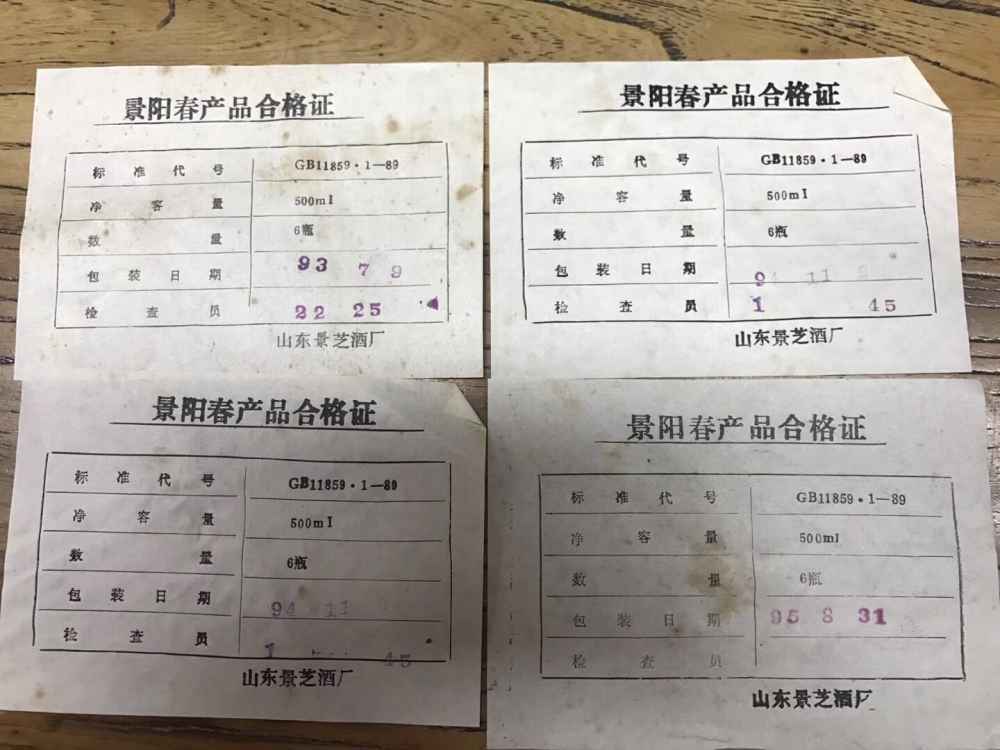 景阳春产品合格证
标准代号 GB11859·1—89
净容量 500ml
数量 6瓶
包装日期 93 7 9
检查员 22 25
山东景芝酒厂
景阳春产品合格证
标准代号 GB11859·1—89
净容量 500ml
数量 6瓶
包装日期 94 11
检查员 1 45
山东景芝酒厂
景阳春产品合格证
标准代号 GB11859·1—89
净容量 500ml
数量 6瓶
包装日期 94 11
检查员 1 45
山东景芝酒厂
景阳春产品合格证
标准代号 GB11859·1—89
净容量 500ml
数量 6瓶
包装日期 95 8 31
检查员
山东景芝酒厂